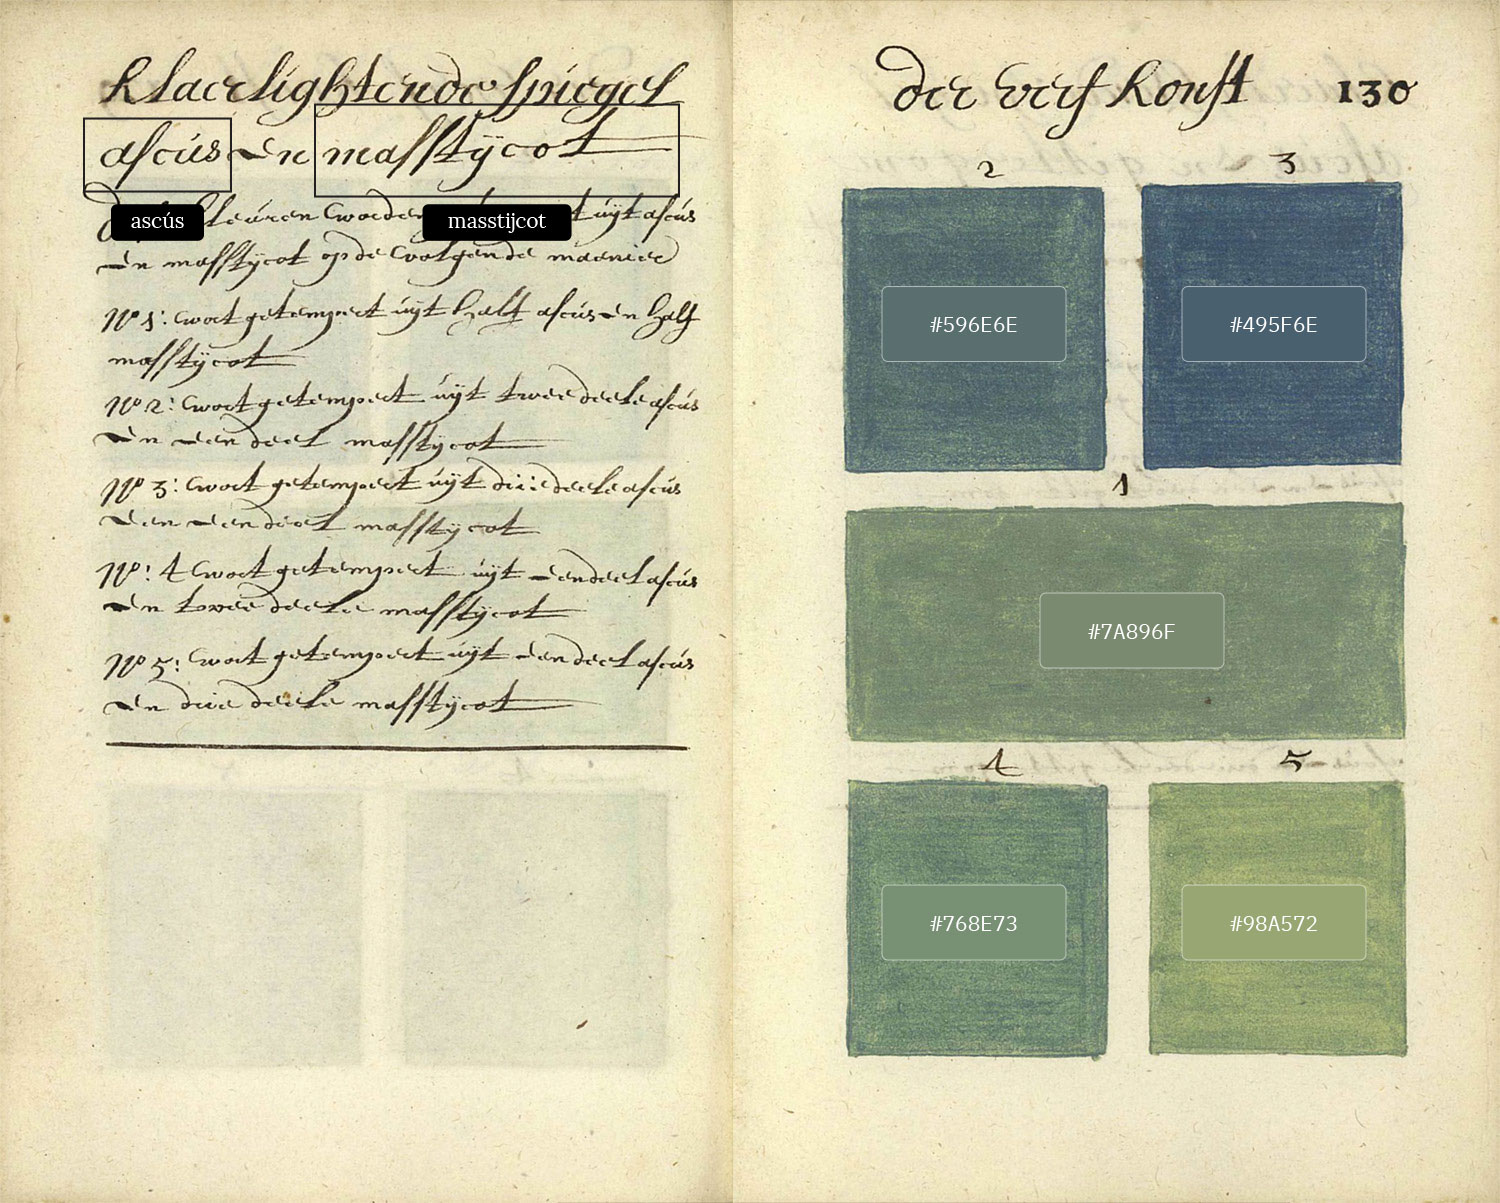 Klaerlightende Spiegel
ascús en masstÿcot
ascús
masstijcot
couleúren worden uÿt ascús
en masstÿcot op de volgende manier
No 1: wort getempert uÿt half ascús en half
masstÿcot
No 2: wort getempert uÿt twee deele ascús
en een deel masstÿcot
No 3: wort getempert uÿt drie deele ascús
en een deel masstÿcot
No: 4 wort getempert uÿt een deel ascús
en twee deele masstÿcot
No 5: wort getempert uÿt een deel ascús
en drie deele masstÿcot
der verf konst 130
2 3
#596E6E #495F6E
1
#7A896F
4 5
#768E73 #98A572